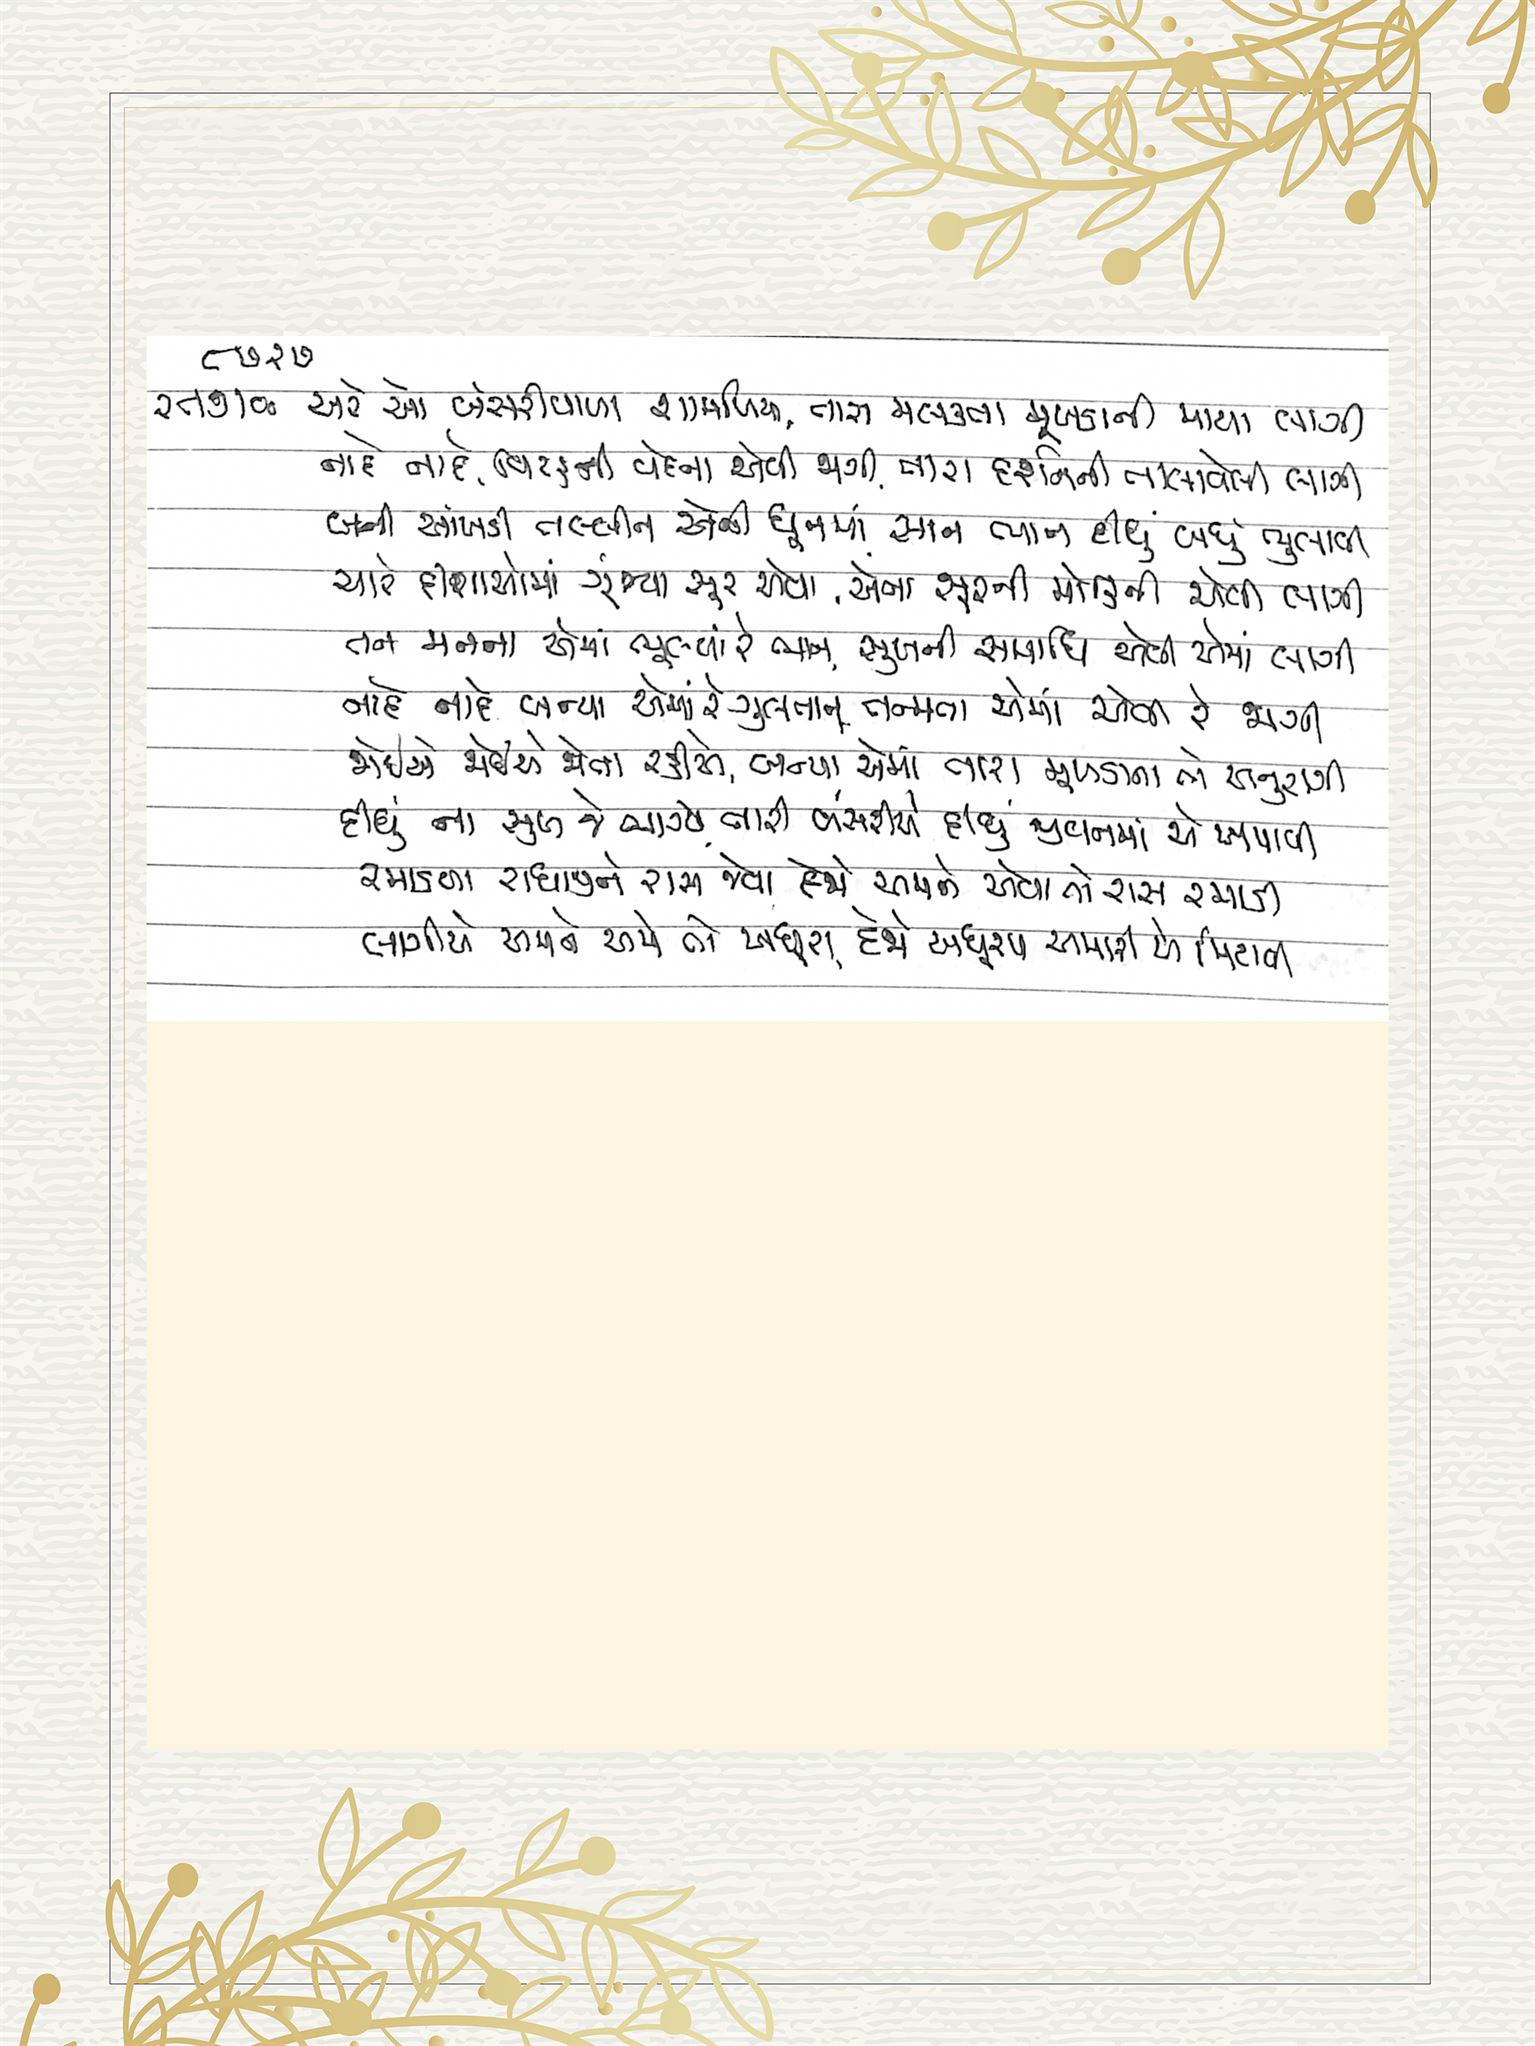 ૮૭૨૭
અરે ઓ બંસરીવાળા શામળિયા, તારા મલકતા મૂખડાની માયા લાગી
નાદે નાદે, વિરહની વેદના એવી જાગી, તારા દર્શનની તાલાવેલી લાગી
બની આંખડી તલ્લીન એની ધૂનમાં, સાન ભાન દીધું બધું ભુલાવી
ચારે દીશાઓમાં ગૂંજ્યા સૂર એવા, એના સૂરની મોહિની એવી લાગી
તન મનના એમાં ભૂલ્યાં રે ભાન, સુખની સમાધિ એવી એમાં લાગી
નાદે નાદે બન્યા એમાં રે ગુલતાન, તન્મતા એમાં એવી રે જાગી
જોઈએ જોઈએ જોતા રહીએ, બન્યા એમાં તારા મૂખડાના તો અનુરાગી
દીધું ના સુખ જે ભાગ્યે, તારી બંસરીએ દીધું જીવનમાં એ અપાવી
રમાડયા રાધાજીને રાસ જેવા, દેજે અમને એવા તો રાસ રમાડી
લાગીએ અમને અમે તો અધૂરા, દેજે અધૂરપ અમારી એ મિટાવી